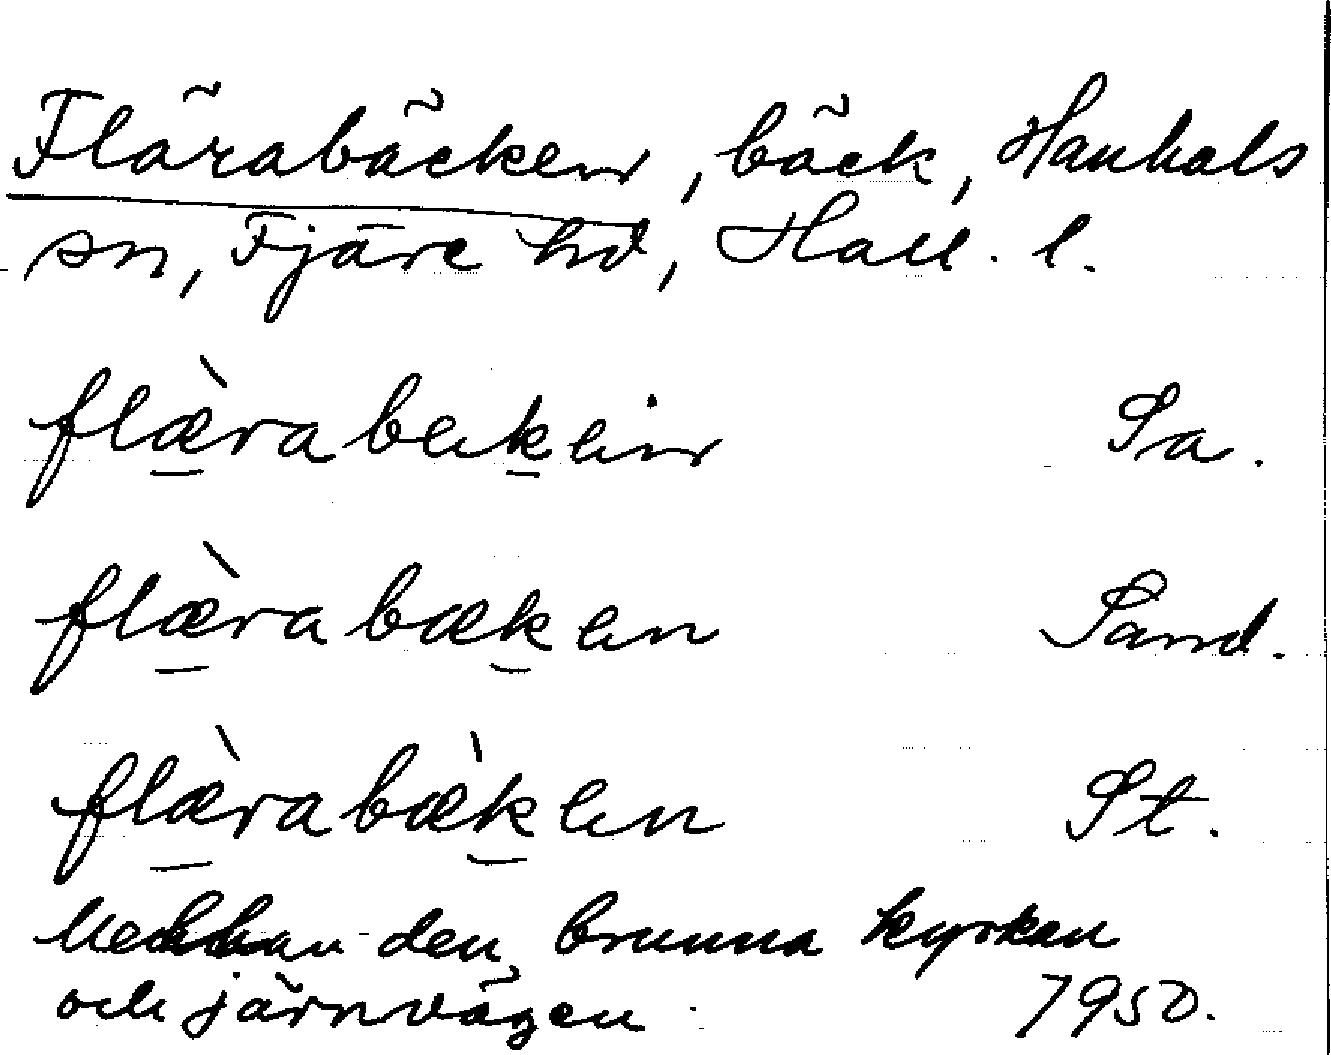 Flärabäcken, bäck, Hanhals
sn, Fjäre hd, Hall. l.
flæ̀rabekein Sa.
flæ̀rabæken Sand.
flæ̀rabæ̀ken St.
Mellan den brunna kyrkan
och järnvägen 1950.